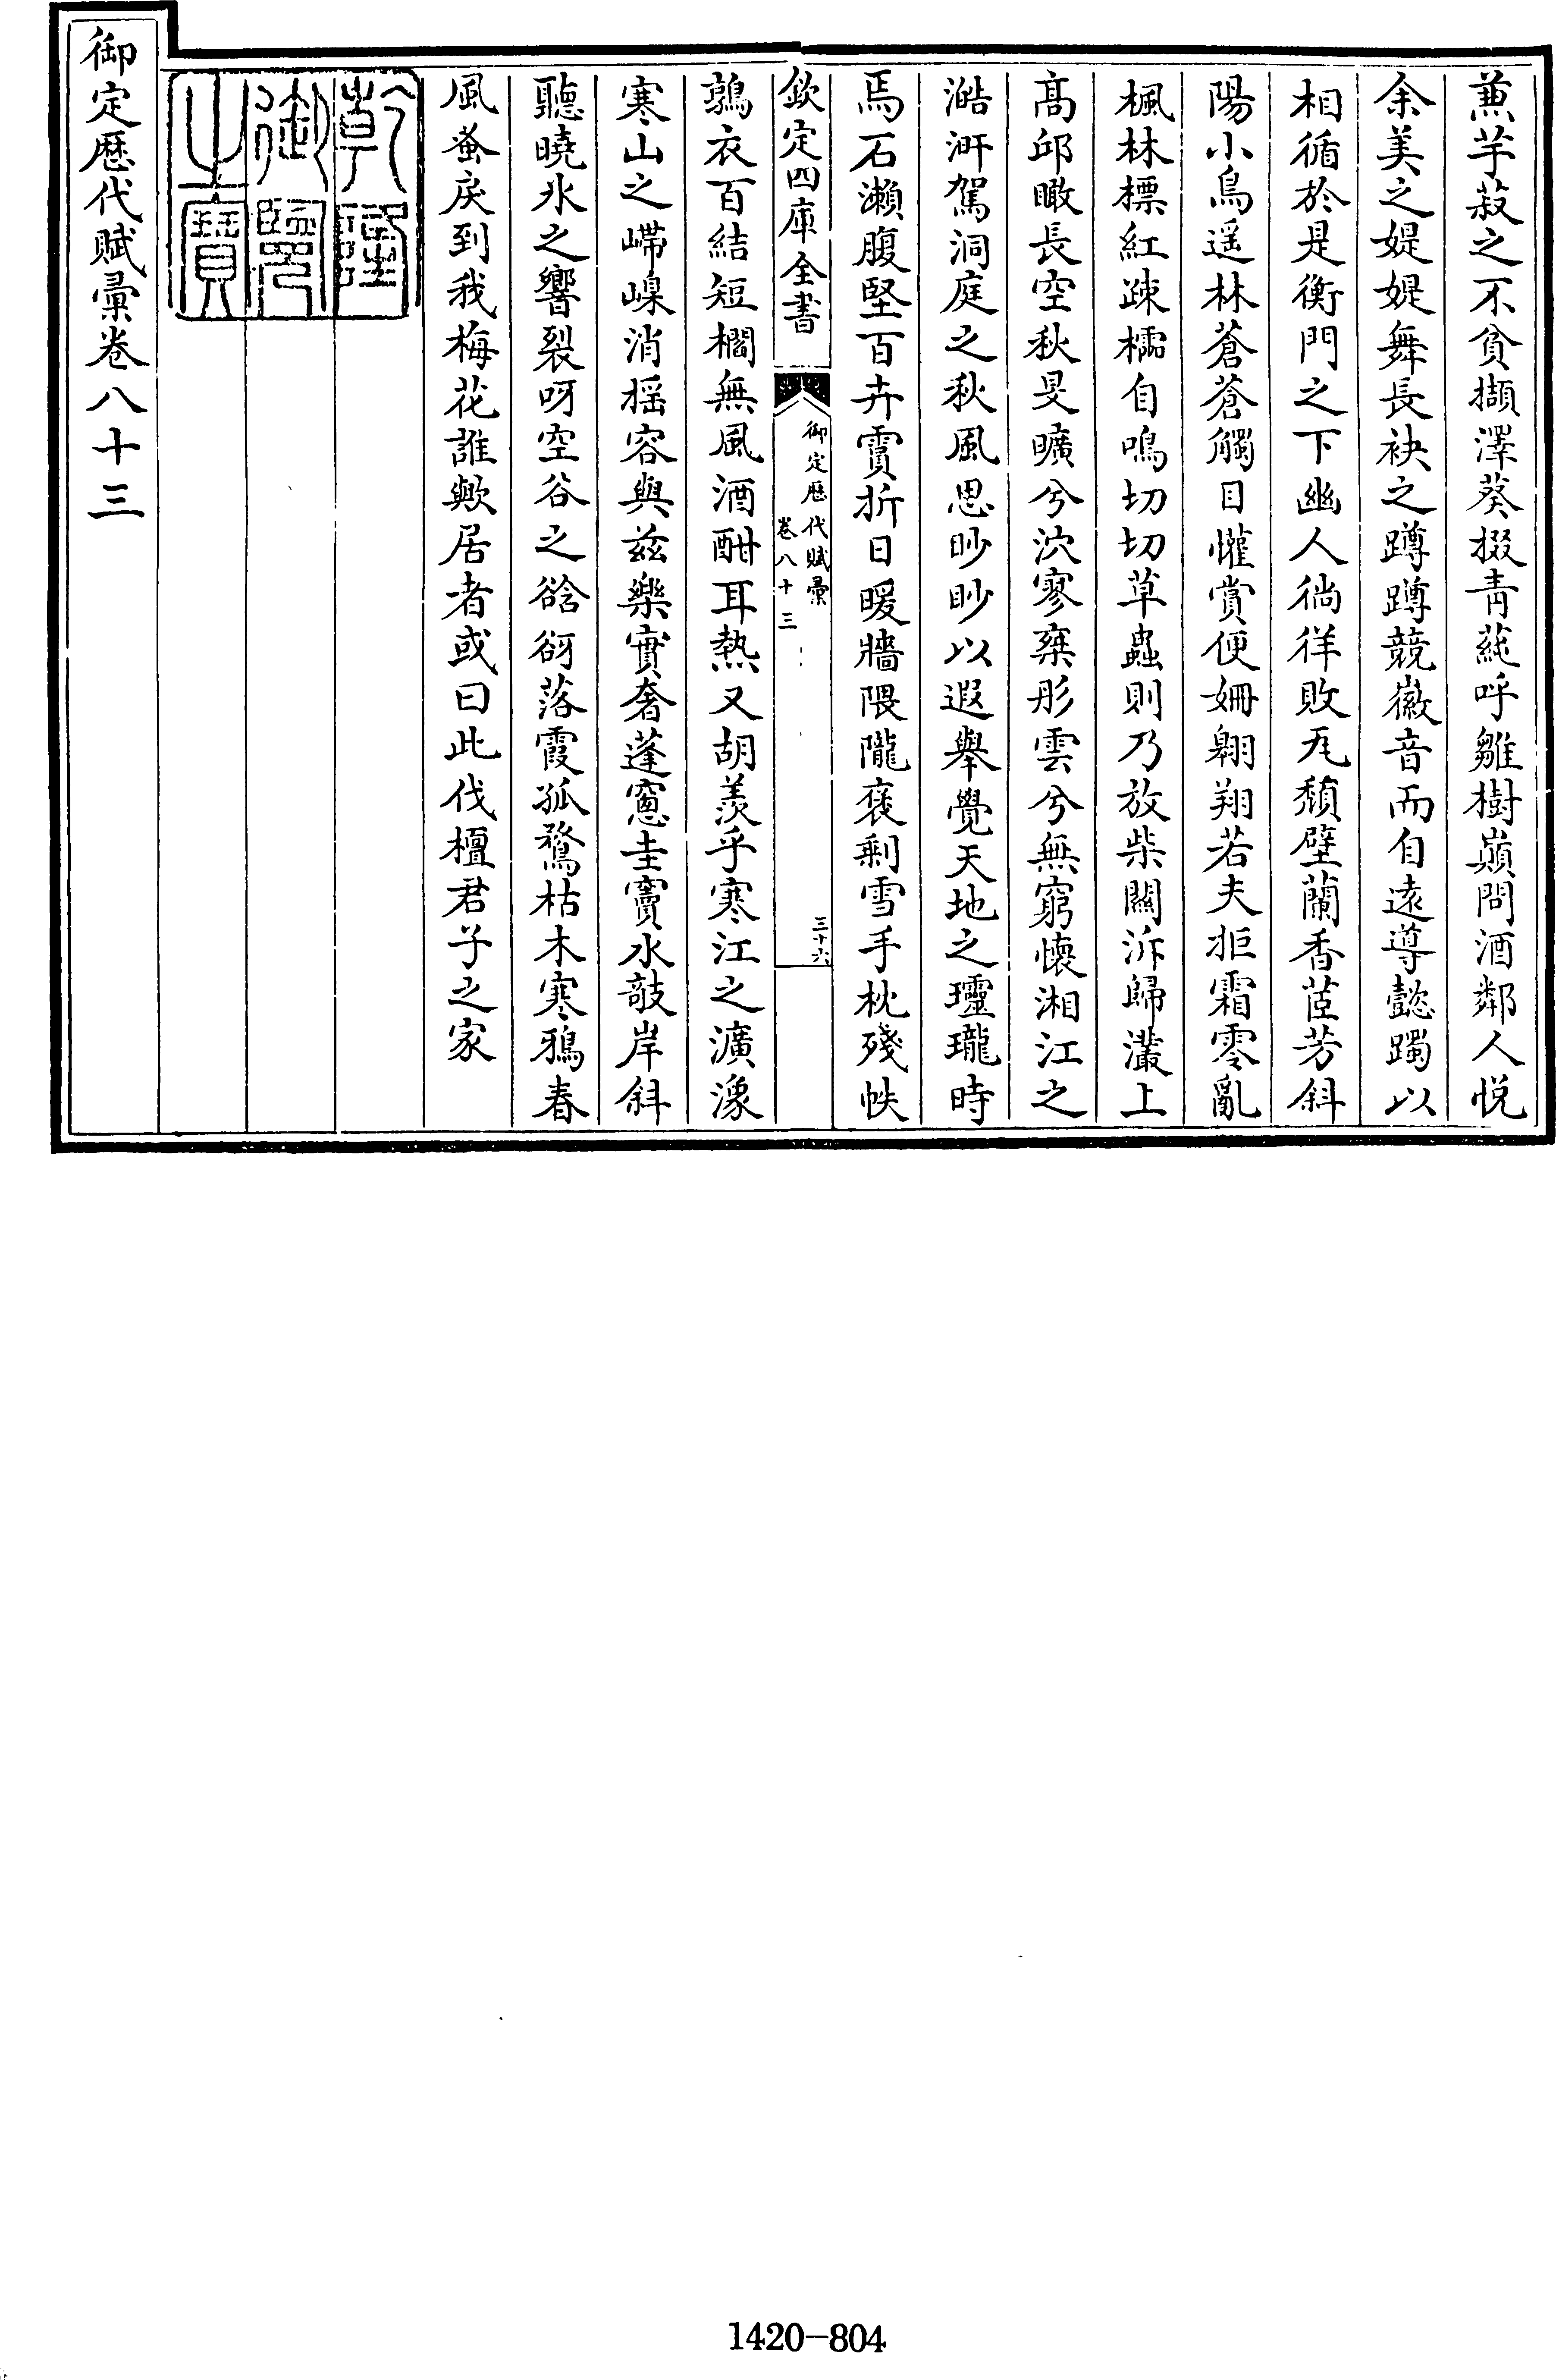 蕉芋菽之不貧擷澤葵掇青蒓呼雛樹巔問酒鄰人悅
余美之媞媞舞長袂之蹲蹲競徽音而自遠導懿躅以
相循於是衡門之下幽人徜徉敗瓦頹壁蘭香茝芳斜
陽小鳥遥林蒼蒼觸目懽賞便姍翱翔若夫拒霜零亂
楓林標紅疎櫺自鳴切切草蟲則乃放柴關泝歸灇上
髙邱瞰長空秋旻曠兮泬寥棄彤雲兮無窮懷湘江之
澔汗駕洞庭之秋風思眇眇以遐舉覺天地之㻏瓏時
焉石瀨腹堅百卉賣折日暖牆隈隴袌剩雪手枕殘帙
欽定四庫全書
御定歷代賦彙
卷八十三
三十六
鶉衣百結短櫩無風酒酣耳熱又胡羨乎寒江之瀇瀁
寒山之㟄嵲消摇容與兹樂實奢蓬窻圭竇水敲岸斜
聽曉氷之響裂呀空谷之谽谺落霞孤鶩枯木寒鴉春
風蚤戾到我梅花誰歟居者或曰此伐檀君子之家
乾隆
御覽
之寶
御定歷代賦彙卷八十三
1420-804